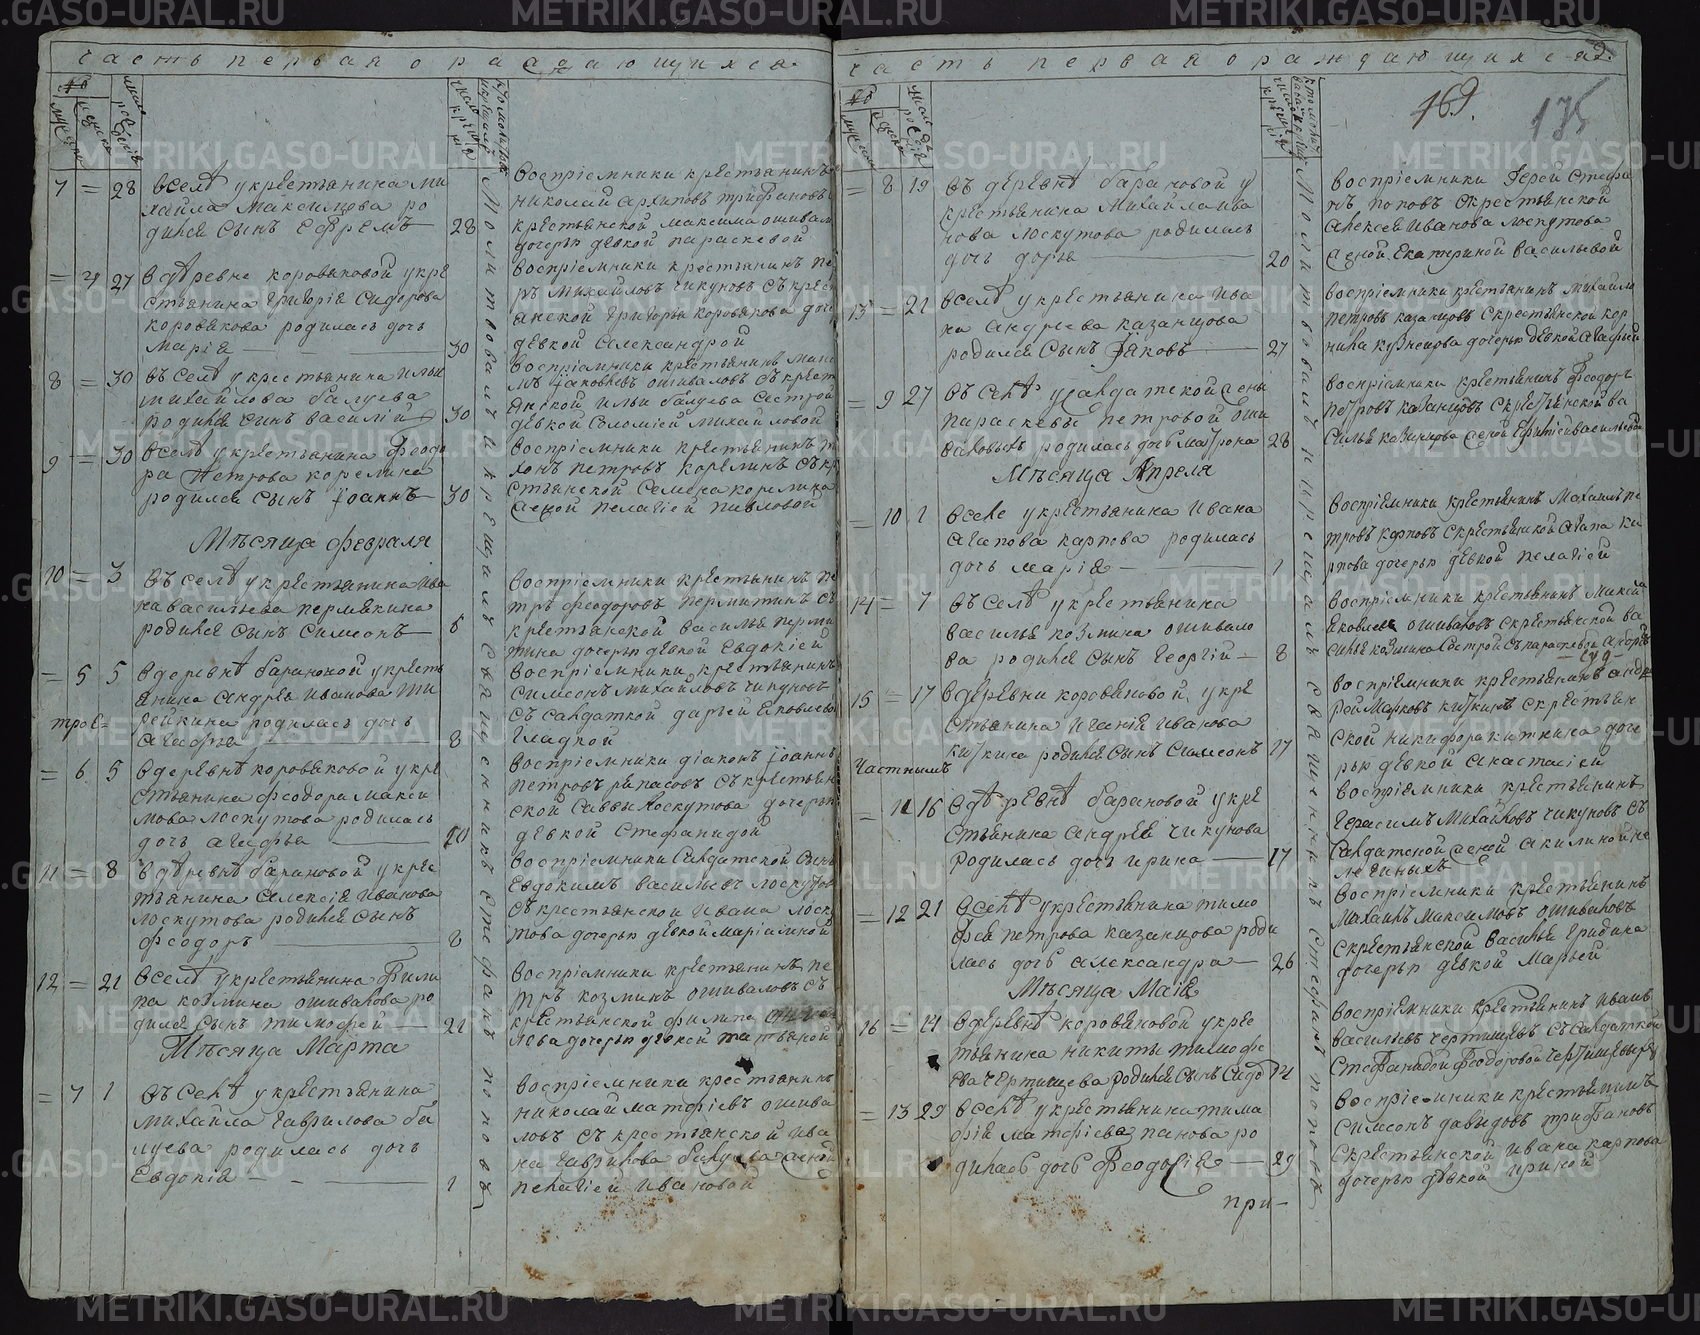 часть первая о раждающихся.
7 = 28 вселѣ укрестьянина Ми
хайла Максимова ро
дился сынъ Ефремъ 28
воспріемники крестьянинъ
николай архиповъ трифановъ
крестьянской максима ошивал
дочерью девкой параскевой
= 4 27 вдѣревне коровяковой укре
стьянина григорія сидорова
коровякова родилась дочь
марія 30
воспріемники крестьянинъ пе
ръ михайловъ чикуновъ съ крест
янской григорья коровякова доче
девкой александрой
8 = 30 въ селѣ укрестьянина ильи
михайлова балуева
родился сынъ василій 30
воспріемники крестьянинъ
мъ іаковлевъ ошиваловъ съ крест
янской ильи балуева сестрой
девкой соломіей михайловой
9 = 30 вселѣ укрестьянина феодо
ра петрова корелина
родился сынъ іоаннъ 30
воспріемники крестьянинъ ти
хонъ петровъ корелинъ съ кр
стьянской семена корелина
женой пелагіей павловой
Мѣсяца февраля
10 = 3 въ селѣ укрестьянина ива
на васильева пермякина
родился сынъ симеонъ 6
воспріемники крестьянинъ пе
тръ феодоровъ пермитинъ съ
крестьянской василья перми
тина дочерью девкой евдокіей
= 5 5 вдеревнѣ барановой укресть
янина андрея иванова ти
рейкина родилась дочь
агафья 8
воспріемники крестьянинъ
симеонъ михайловъ чикуновъ
съ салдаткой дарьей яковлевой
гладкой
трое-
= 6. 5 вдеревнѣ коровяковой укре
стьянина феодора макси
мова лоскутова родилась
дочь агафья 10
воспріемники діаконъ іоаннъ
петровъ репасовъ съ крестьян
ской савы лоскутова дочерью
девкой стефанидой
11 = 8 вдѣревнѣ барановой укрес
тьянина алексія иванова
лоскутова родился сынъ
феодоръ 8
воспріемники салдатской сынъ
евдокимъ васильевъ лоскутов
съ крестьянской ивана лоску
това дочерью девкой маріаміной
12 = 21 вселѣ укрестьянина фили
па козмина ошивалова ро
дился сынъ тимофей 21
воспріемники крестьянинъ пе
тръ козминъ ошиваловъ съ
крестьянской филипа
лова дочерью девкой татьяной
Мѣсяца Марта
= 7 1 въ селѣ укрестьянина
михайла гаврилова ба
луева родилась дочь
евдокія 1
воспріемники крестьянинъ
николай матфіевъ ошива
ловъ съ крестьянской ива
на гаврилова балуева женой
пелагіей ивановой
Молитвовалъ и крещалъ священникъ стефанъ поповъ
часть первая о раждающихся
169.
175
= 8 19 въ деревнѣ барановой у
крестьянина михайла ива
нова лоскутова родилась
дочь дарья 20
воспріемники іерей стефа
нъ поповъ скрестьянской
алексея иванова лоскутова
женой екатериной васильевой
13 = 21 вселѣ укрестьянина ива
на андреева казанцова
родился сынъ іяковъ 27
воспріемники крестьянинъ михайло
петровъ казанцовъ скрестьянской кор
нила кузнецова дочерью девкой агафьей
= 9 27 въ селѣ усалдатской жены
параскевы петровой оши
валовыхъ родилась дочь матрона 28
воспріемники крестьянинъ феодоръ
петровъ казанцовъ скрестьянской ва
силья казанцова женой васильевой
Мѣсяца Апреля
= 10 1 вселе укрестьянина ивана
агапова карпова родилась
дочь марія 1
воспріемники крестьянинъ михаилъ пе
тровъ карповъ скрестьянской агапа ка
рпова дочерью девкой пелагіей
14 = 7 въ селѣ укрестьянина
василья козмина ошивало
ва родился сынъ георгій 8
воспріемники крестьянинъ максим
яковлевъ ошиваловъ скрестьянской ва
силья козмина сестрой параскевой
15 = 17 вдѣревни коровяковой укре
стьянина игнатія иванова
киткина родился сынъ симеонъ 17
воспріемники крестьянинъ андр
рей марковъ киткинъ скрестьян
ской никифора киткина доче
рью девкой анастасіей
частнымъ
= 11 16 вдѣревнѣ барановой укре
стьянина андрея чикунова
родилась дочь ирина 17
воспріемники крестьянинъ
герасимъ михайловъ чикуновъ съ
салдатской женой акилиной
= 12 21 вселѣ укрестьянина тимо
фея петрова казанцова роди
лась дочь александра 26
воспріемники крестьянинъ
михаилъ максимовъ ошиваловъ
скрестьянской василья гридина
дочерью девкой марьей
Мѣсяца Маія
16 = 14 вдеревнѣ коровяковой укрес
тьянина никиты тимофе
ева чертищева родился сынъ сидо 14
воспріемники крестьянинъ иванъ
васильевъ чертищевъ съ салдаткой
стефанидой феодоровой чертищевыхъ
= 13 29 вселѣ укрестьянина тима
фія матфіева панова ро
дилась дочь феодосія 29
воспріемники крестьянинъ
симеонъ давыдовъ трифановъ
скрестьянской ивана карпова
дочерью девкой ириной
Молитвовалъ и крещалъ священникъ стефанъ поповъ
при-
METRIKI.GASO-URAL.RU